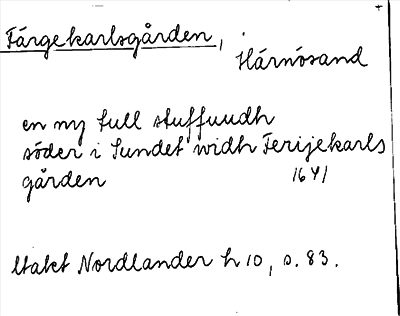 Färgekarlsgården,
Härnösand
en ny full stuffuudh
söder i Sundet widh Ferijekarls
gården 1641
Utakt Nordlander h 10, s. 83.